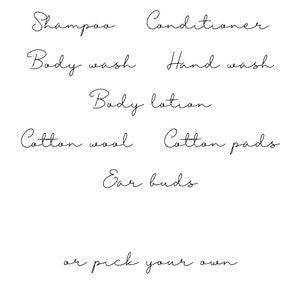 Shampoo Conditioner
Body wash Hand wash
Body lotion
Cotton wool Cotton pads
Ear buds
or pick your own